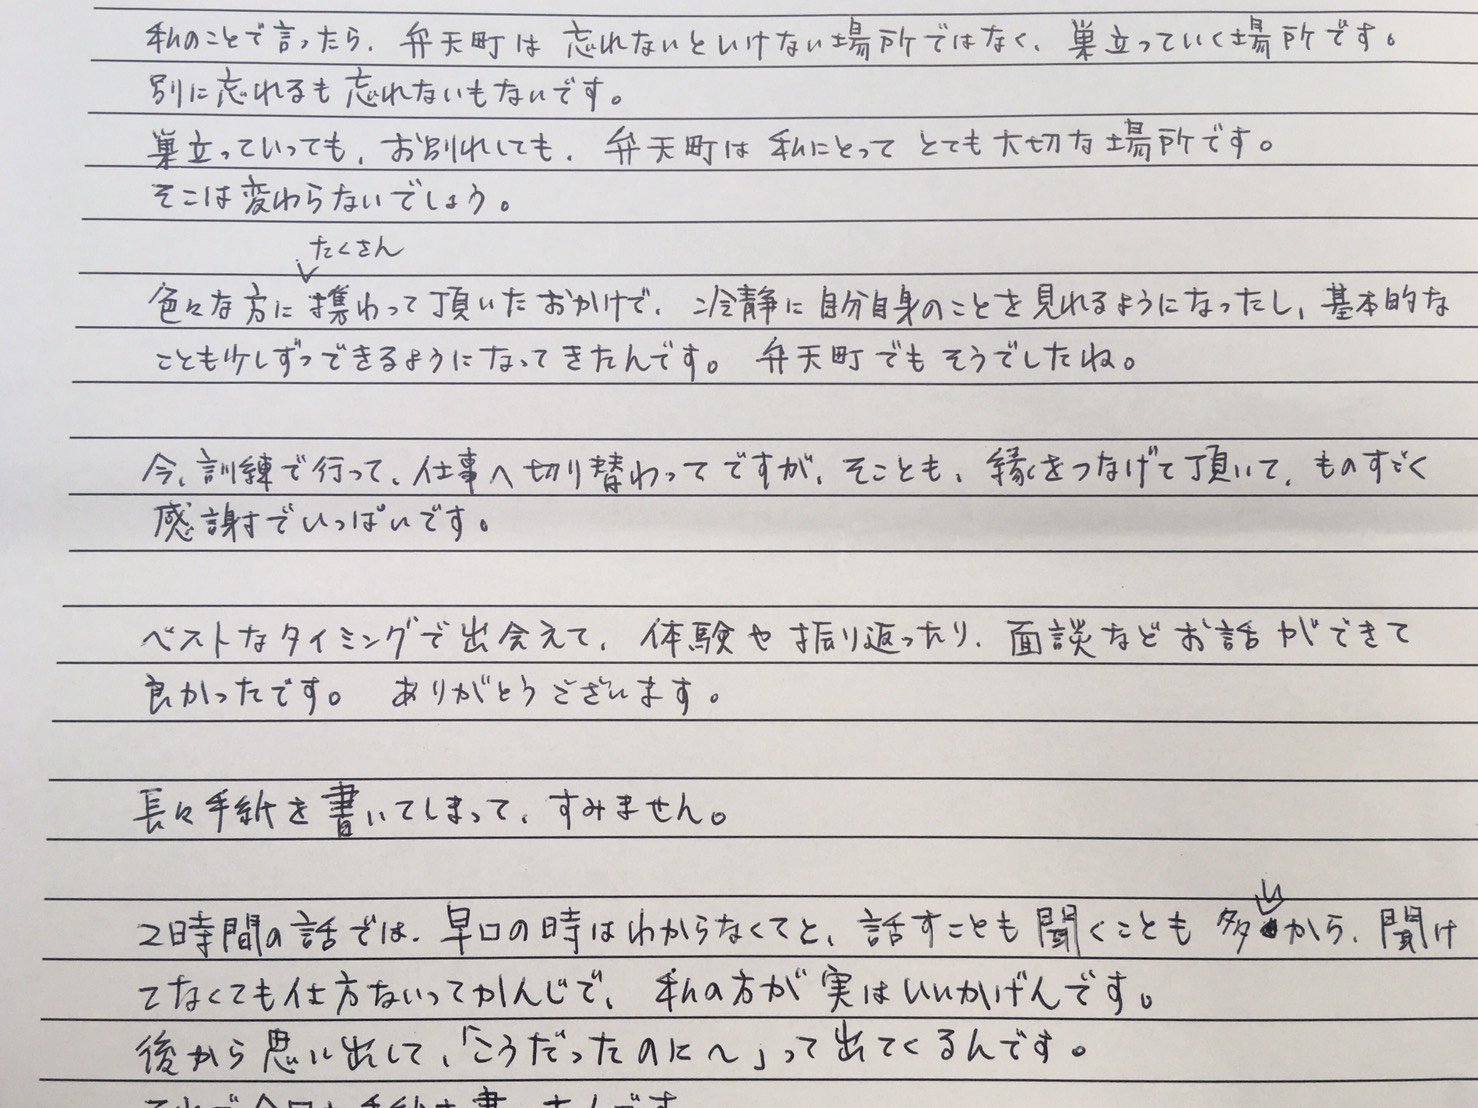 私のことで言ったら、弁天町は忘れないといけない場所ではなく、巣立っていく場所です。
別に忘れるも忘れないもないです。
巣立っていっても、お別れしても、弁天町は私にとってとても大切な場所です。
そこは変わらないでしょう。
たくさん
色々な方に携わって頂いたおかけで、冷静に自分自身のことを見れるようになったし、基本的な
ことも少しずつできるようになってきたんです。弁天町でもそうでしたね。
今、訓練で行って、仕事へ切り替わってですが、そことも、縁をつなげて頂いて、ものすごく
感謝でいっぱいです。
ベストなタイミングで出会えて、体験や振り返ったり、面談などお話ができて
良かったです。ありがとうございます。
長々手紙を書いてしまって、すみません。
い
2時間の話では、早口の時はわからなくてと、話すことも聞くことも多から、聞け
てなくても仕方ないってかんじで、私の方が実はいいかげんです。
後から思い出して、「こうだったのに〜」って出てくるんです。